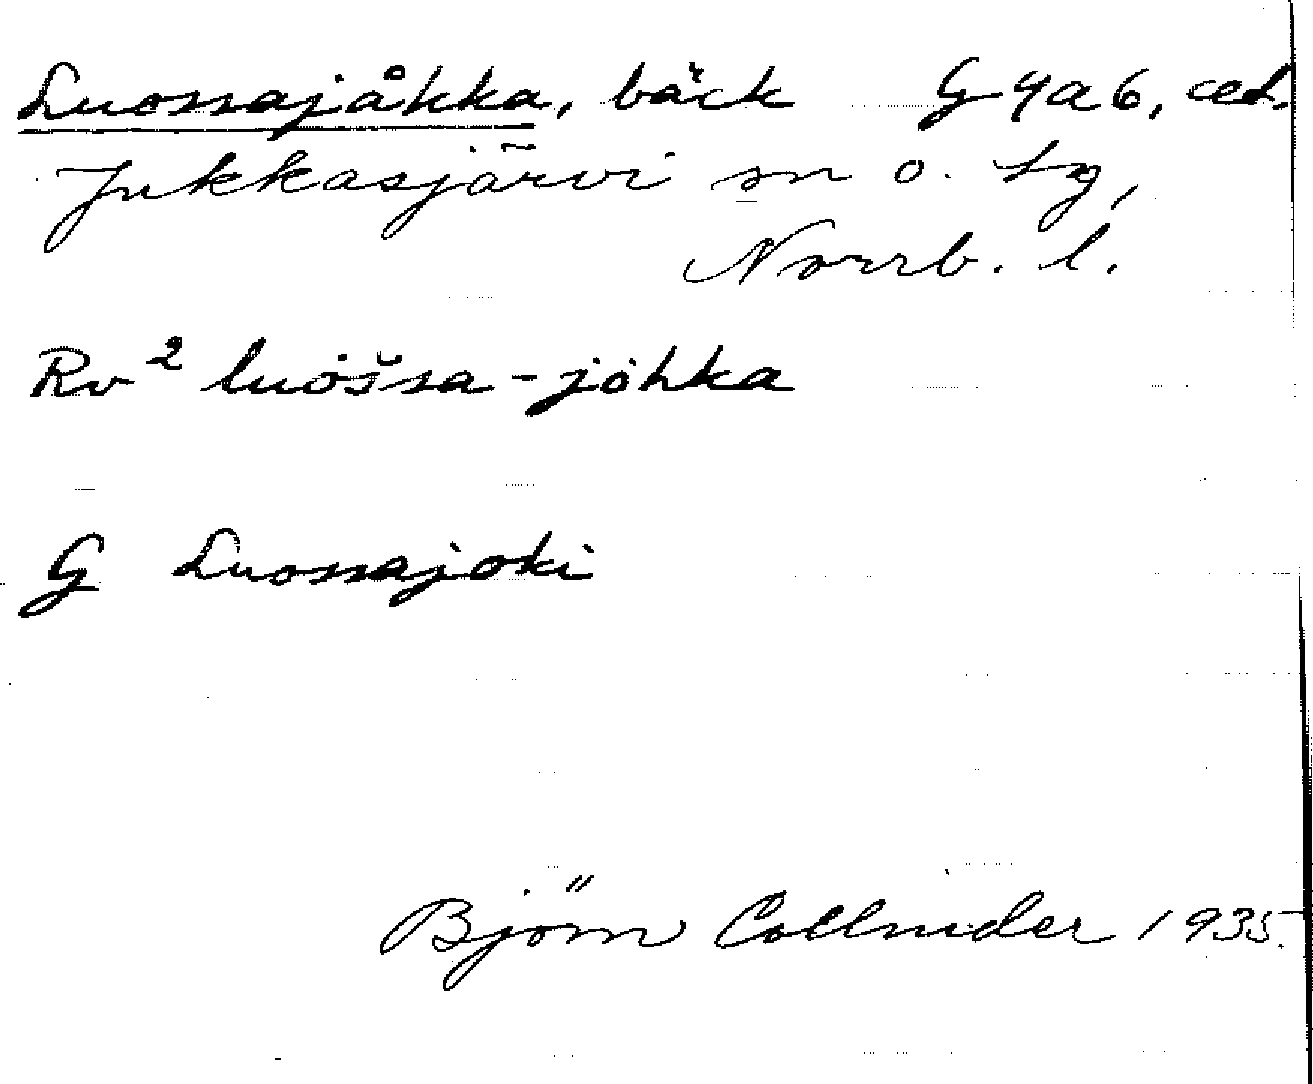 Luossajåkka, bäck G 4a6, ced.
Jukkasjärvi sn o. tg,
Norrb. l.
Rv² luòšsa-jòhka
G Luossajoki
Björn Collinder 1935.